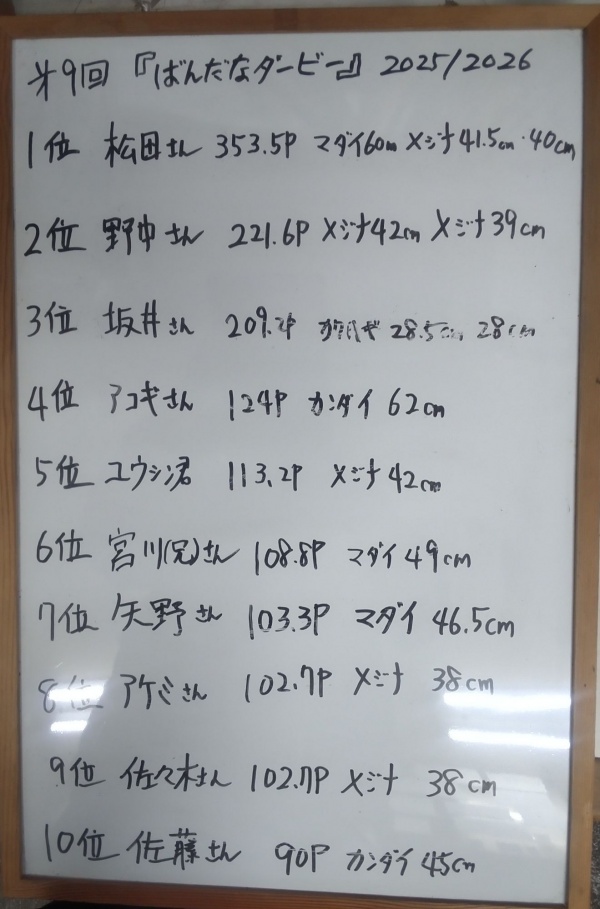 第9回『ばんだなダービー』2025/2026
1位 松田さん 353.5P マダイ60cm メジナ41.5cm・40cm
2位 野中さん 221.6P メジナ42cm メジナ39cm
3位 坂井さん 209.2P 28.5cm 28cm
4位 アコギさん 124P カンダイ 62cm
5位 ユウシ君 113.2P メジナ42cm
6位 宮川(兄)さん 108.8P マダイ49cm
7位 矢野さん 103.3P マダイ 46.5cm
8位 アケミさん 102.7P メジナ 38cm
9位 佐々木さん 102.7P メジナ 38cm
10位 佐藤さん 90P カンダイ 45cm